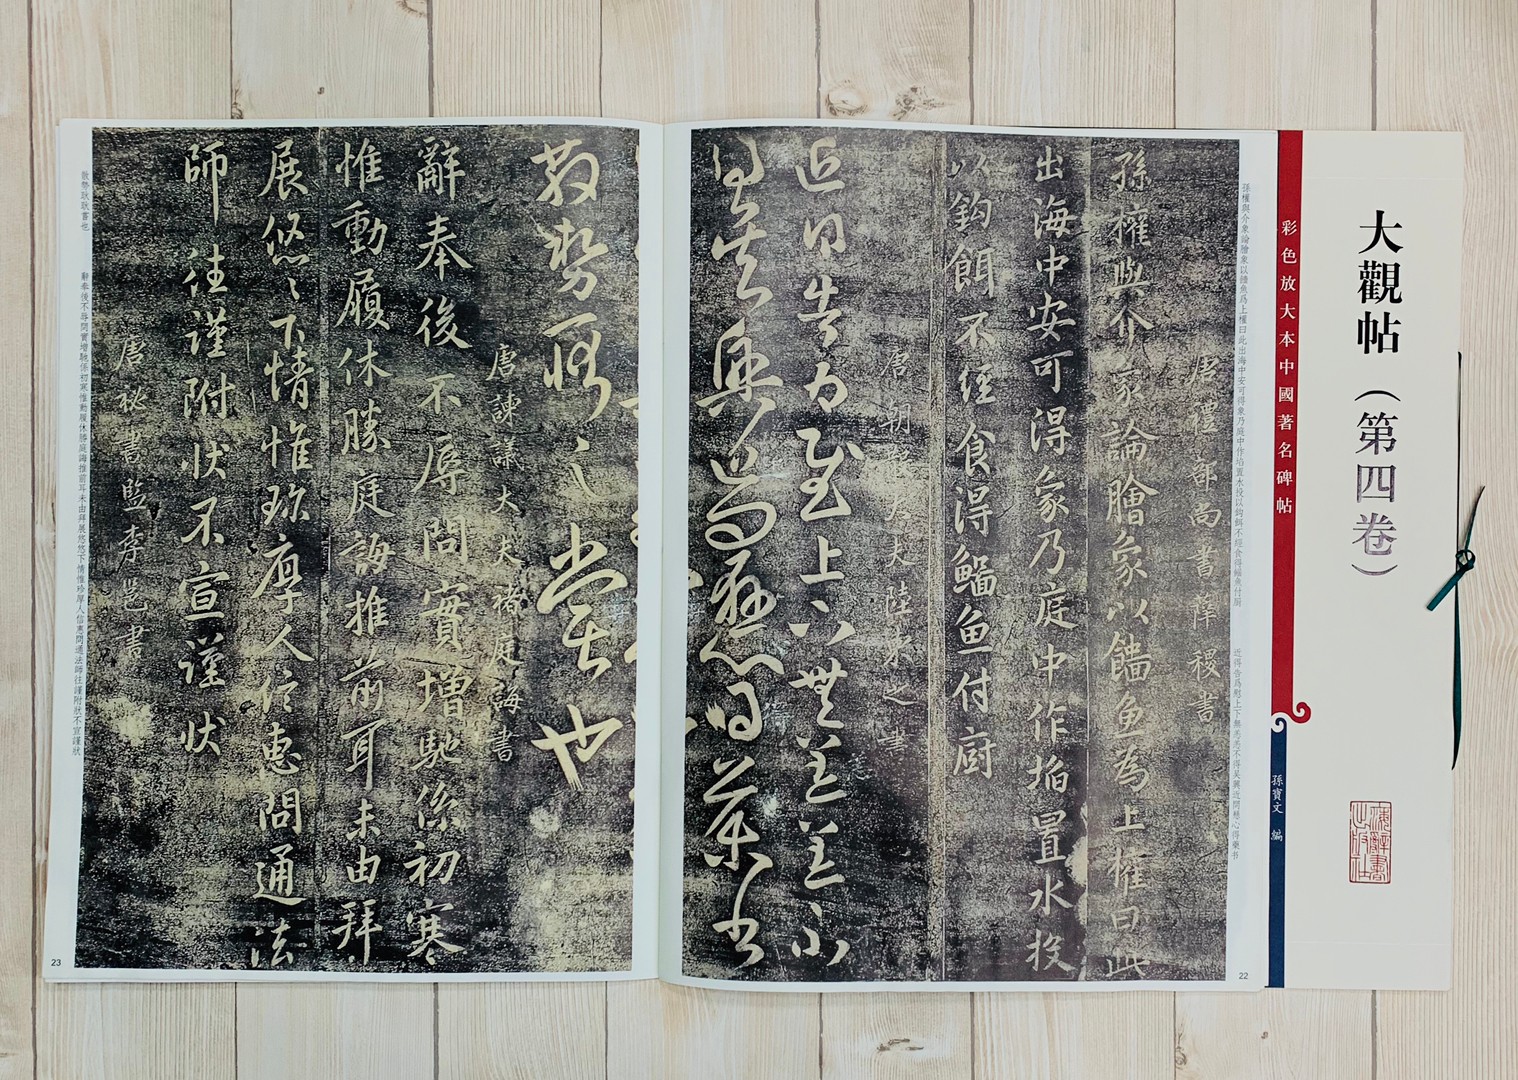 大觀帖（第四卷）
彩色放大本中國著名碑帖
孫寶文 編
孫權與介象論膾象以鯔魚爲上權曰此出海中安可得象乃庭中作埳置水投以鈎餌不經食得鯔魚付厨
近得告爲慰上下無恙恙不得吳興近問懸心得藥书
唐禮部尚書薛稷書
孫權與介象論膾象以鯔魚為上權曰此
出海中安可得象乃庭中作埳置水投
以鈎餌不經食得鯔魚付厨
唐朝散大夫陸柬之書
近得告為慰上下無恙恙不
得吳興近問懸心得藥书
散勢耿耿嘗也
唐諫議大夫褚庭誨書
辭奉後不辱問實增馳係初寒
惟動履休勝庭誨推前耳未由拜
展悠〻下情惟珍厚人信惠問通法
師往謹附狀不宣謹狀
唐秘書監李邕書
散勢耿耿嘗也
辭奉後不辱問實增馳係初寒惟動履休勝庭誨推前耳未由拜展悠悠下情惟珍厚人信惠問通法師往謹附狀不宣謹狀
23
22